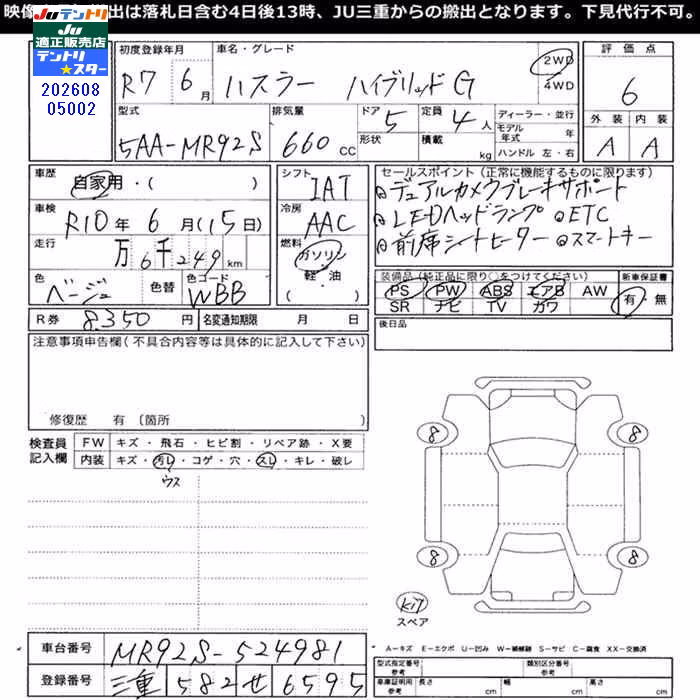 映像 出は落札日含む4日後13時、JU三重からの搬出となります。下見代行不可。
JUテントリ
JU適正販売店
テントリ★スター
202608
05002
初度登録年月 車名・グレード 評価点
R7 6月 ハスラー ハイブリッドG 2WD 4WD 6
型式 排気量 ドア 定員 ディーラー・並行 外装 内装
5AA-MR92S 660cc 5 4人 モデル年式 年 A A
形状 積載 kg ハンドル 左・右
車歴 シフト セールスポイント(正常に機能するものに限ります)
自家用・( ) IAT ◎デュアルカメラブレーキサポート
車検 冷房 ◎LEDヘッドランプ ◎ETC
R10年6月(15日) AAC ◎前席シートヒーター ◎スマートキー
走行 燃料
万6千249km ガソリン
軽・油
( )
色 色替 色コード 装備品(純正品に限り○をつけてください) 新車保証書
ベージュ WBB PS PW ABS エアB AW 有・無
SR ナビ TV カワ
R券 8,350円 名変通知期限 月 日 後日品
注意事項申告欄(不具合内容等は具体的に記入して下さい)
修復歴 有(箇所 )
検査員記入欄 FW キズ・飛石・ヒビ割・リペア跡・X要
内装 キズ・汚レ・コゲ・穴・スレ・キレ・破レ
ウス
8 8
8 8
kit
スペア
A−キズ E−エクボ U−凹み W−補修跡 S−サビ C−腐食 XX−交換済
車台番号 MR92S-524981
登録番号 三重 582 せ 6595
型式指定番号 参考 類別区分番号 参考
車庫証明用 参考 長さ cm 幅 cm 高さ cm